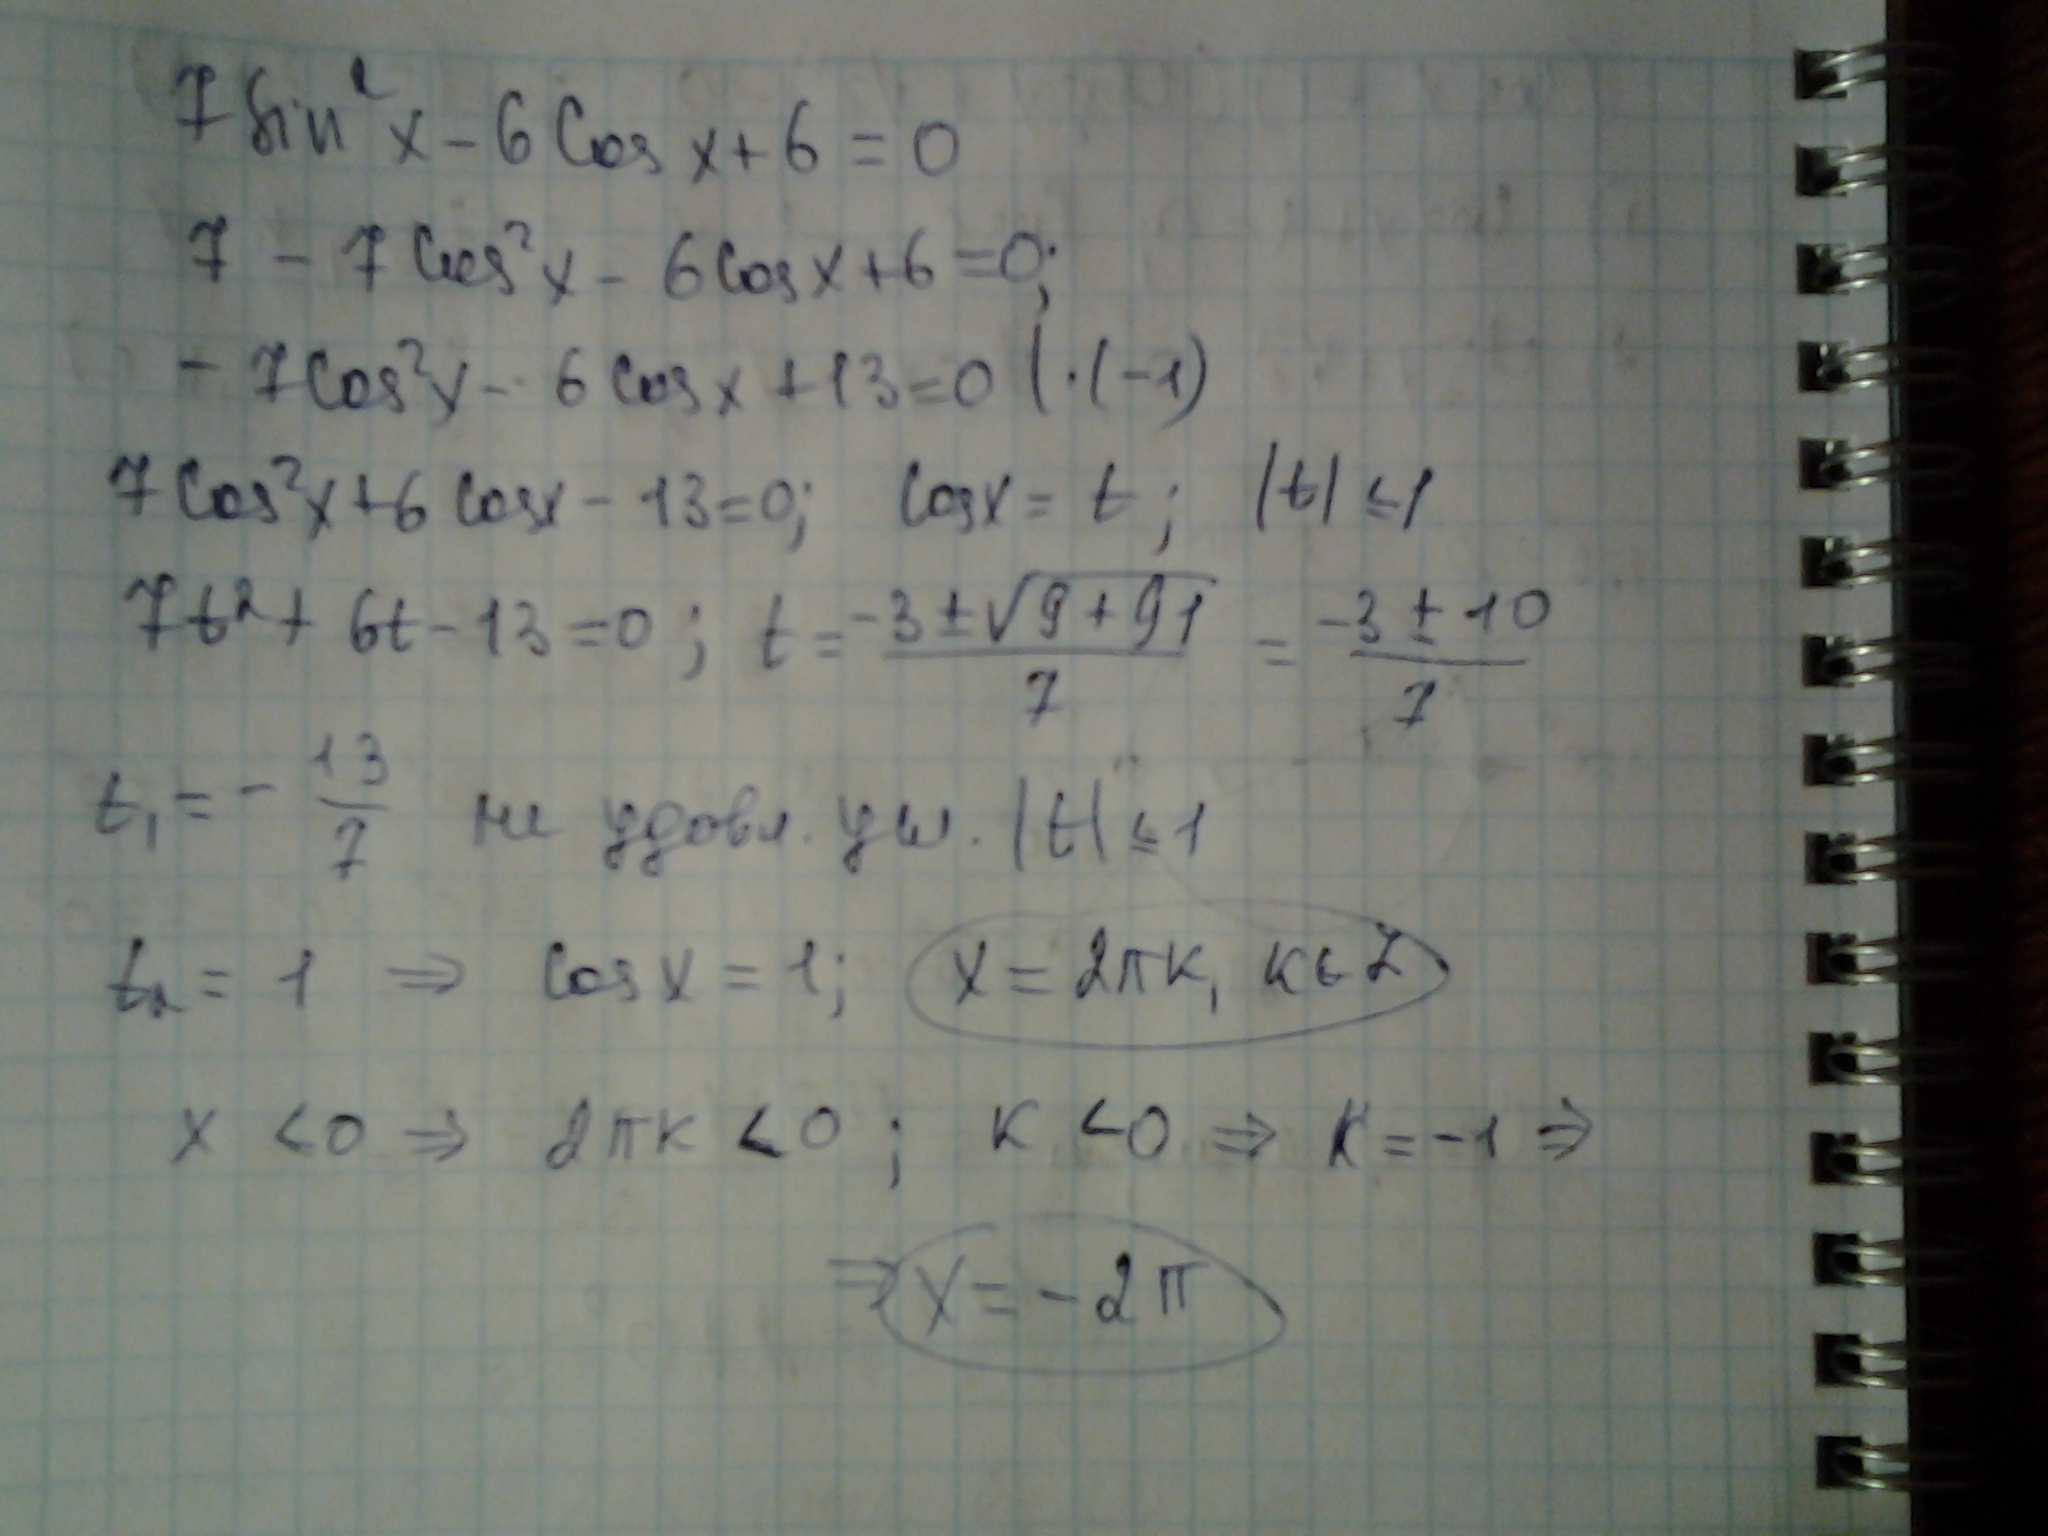 7 Sin²x - 6 Cos x + 6 = 0
7 - 7 Cos²x - 6 Cos x + 6 = 0;
- 7 Cos²x - 6 Cos x + 13 = 0 | · (-1)
7 Cos²x + 6 Cos x - 13 = 0; Cos x = t; |t| ≤ 1
7t² + 6t - 13 = 0; t = (-3 ± √(9 + 91))/7 = (-3 ± 10)/7
t₁ = - 13/7 не удовл. усл. |t| ≤ 1
t₂ = 1 ⇒ Cos x = 1; x = 2πк, к ∈ Z
x < 0 ⇒ 2πк < 0; к < 0 ⇒ к = -1 ⇒
⇒ x = -2π